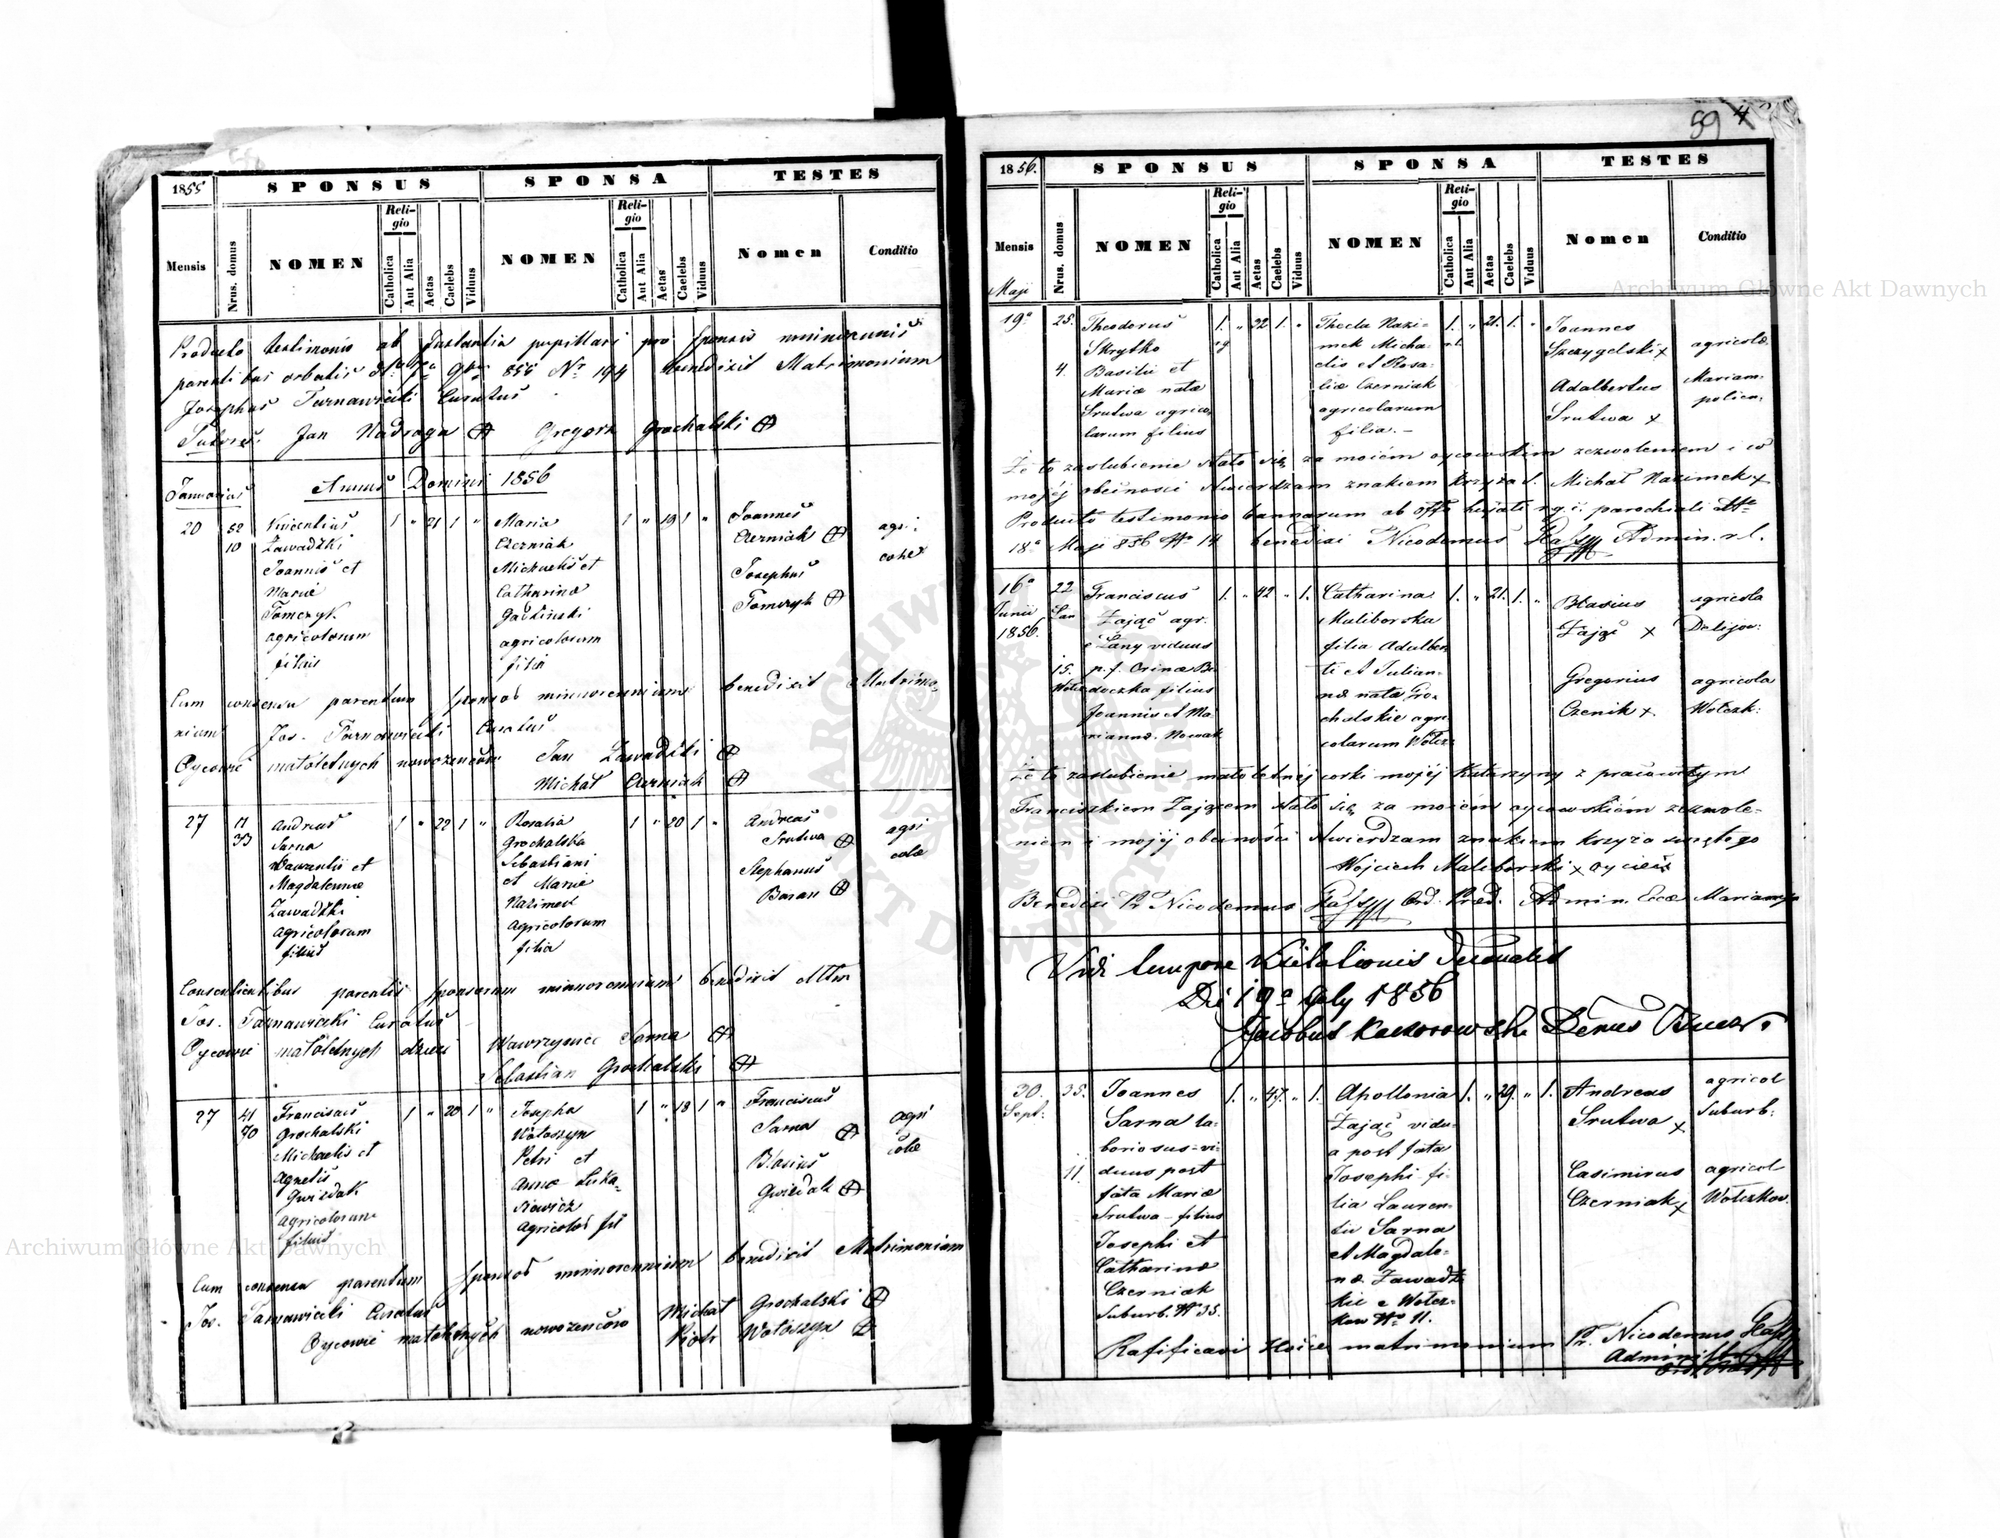 1855
SPONSUS
SPONSA
TESTES
Mensis
Nrus. domus
NOMEN
Reli-
gio
Catholica
Aut Alia
Aetas
Caelebs
Viduus
NOMEN
Reli-
gio
Catholica
Aut Alia
Aetas
Caelebs
Viduus
Nomen
Conditio
Producto testimonio ab Instantia pupillari pro sponsis
parentibus orbatis 855 Nr 194 benedixit Matrimonium
Josephus Tarnawiecki Curatus
Jan Nadraga Gregorz Grochalski
Januarius
Annus Domini 1856
20
52
10
Vincentius
Zawadzki
Joannis et
Mariæ
Tomczyk
agricolorum
filius
1 " 21 1 "
Maria
Czerniak
Michaelis et
Catharinæ
agricolorum
filia
1 " 19 1 "
Joannes
Czerniak
Josephus
Tomczyk
agri
colæ
Cum consensu parentum sponsos minorennium benedixit Matrimo-
nium Jos. Tarnawiecki Curatus
Oycowie małoletnych nowożenców Jan Zawadzki
Michał Czerniak
27
11
33
Andreas
Sarna
Wawrentii et
Magdalennæ
Zawadzki
agricolorum
filius
1 " 22 1 "
Rosalia
Grochalska
Sebastiani
et Mariæ
Nazimek
Agricolorum
filia
1 " 20 1 "
Andreas
Srutwa
Stephanus
Baran
agri
colæ
Consentientibus parentis sponsorum minnorennium benedixit Mtrm
Jos. Tarnawiecki Curatus
Oycowie małoletnych dzieci Wawrzyniec Sarna
Sebastian Grochalski
27
41
70
Franciscus
Grochalski
Michaelis et
Agnetis
Gwizdak
Agricolorum
filius
1 " 20 1 "
Josepha
Wołoszyn
Petri et
Annæ Luka-
siewicz
Agricolos
1 " 18 1 "
Franciscus
Sarna
Blasius
Gwizdak
agri
colæ
Cum consensu parentum sponsos minnorennium benedixit Matrimonium
Jos. Tarnawiecki Curatus
Oycowie małoletnych nowożenców Michał Grochalski
Piotr Wołoszyn
59
1856.
SPONSUS
SPONSA
TESTES
Mensis
Maji
Nrus. domus
NOMEN
Reli-
gio
Catholica
Aut Alia
Aetas
Caelebs
Viduus
NOMEN
Reli-
gio
Catholica
Aut Alia
Aetas
Caelebs
Viduus
Nomen
Conditio
19a
25.
4.
Theodorus
Skrytko
Basilii et
Mariæ natæ
Srutwa agrico
larum filius
1. " 32 1. "
Thecla Nazi-
mek Micha-
elis et Rosa-
liæ Czerniak
agricolarum
filia. -
1. " 21. 1. "
Joannes
Szczygelski x
Adalbertus
Srutwa x
agricolæ
Mariam-
polien.
Że to zaslubienie stało się za moiém oycowskim zezwoleniem i w
mojéj obecnosci stwierdzam znakiem krzyża s. Michał Nazimek x
Producto testimonio bannorum ab offo hujati r.g.c. parochiali dtto
18a Maji 856 No 14 benedixi Nicodemus Admin. r. l.
16a
Junii
1856.
22
15.
Franciscus
Zając agr.
viduus
filius
Joannis et Ma-
riannæ Nowak
1. " 42 " 1.
Catharina
Maliborska
filia Adalber-
ti et Julian-
næ natæ Gro-
chalskie agri-
colarum
1. " 21. 1. "
Blasius
Zając x
Gregorius
Czenik x
agricola
agricola
Wołczk:
Że to zaslubienie małoletnéj corki mojéj Katarzyny z pracowitym
Franciszkiem Zającem stało się za moiém oycowskiém zezwole-
niem i mojéj obecności stwierdzam znakiem krzyża swiętego
Wojciech Maliborski x oyciec
Benedixi Pr Nicodemus Ord. Præd. Admin. Eccæ
Vidi tempore Visitationis Decanalis
Die 19a July 1856
Jacobus Kaczorowski
30.
Sept.
35.
11.
Joannes
Sarna la-
boriosus - vi-
duus post
fata Mariæ
Srutwa - filius
Josephi et
Catharinæ
Czerniak
Suburb. No 35.
1. " 47. " 1.
Apollonia
Zając vidu-
a post fata
Josephi fi-
lia Lauren-
tii Sarna
et Magdale-
næ Zawadz-
kie e Wołcz-
kow No 11.
1. " 29. " 1.
Andreas
Srutwa x
Casimirus
Czerniak x
agricol
Suburb:
agricol
Wołczkow.
Ratificavi hoice matrimonium Pr. Nicodemus
Archiwum Główne Akt Dawnych
Archiwum Główne Akt Dawnych
ARCHIWUM GŁÓWNE AKT DAWNYCH